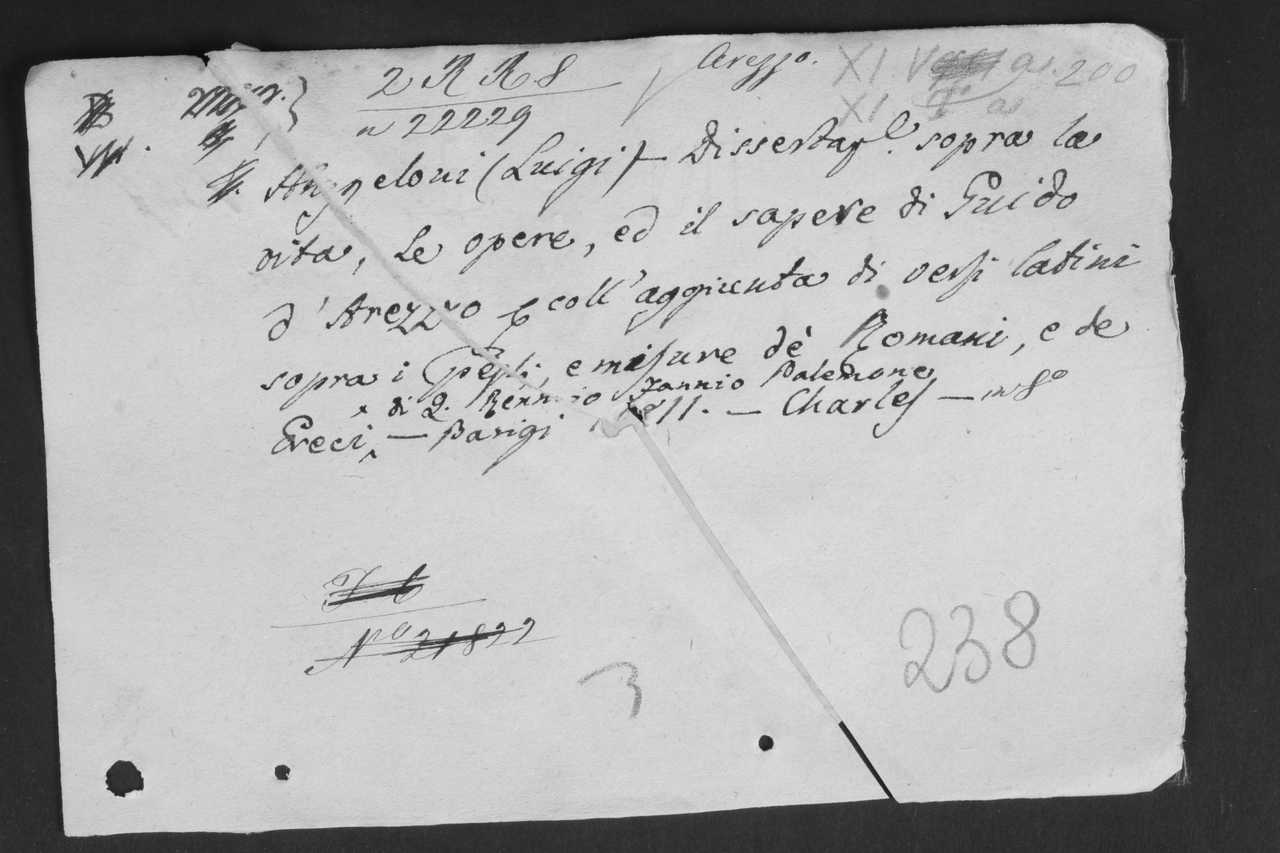 2 R R 8
n 22229
Arezzo.
XI V 200
XI
Angeloni (Luigi) — Dissertaz.e sopra la
vita, le opere, ed il sapere di Guido
d'Arezzo coll'aggiunta di versi latini
sopra i Pesi, e misure dè Romani, e de
di Q. Rennio Fannio Palemone
Greci, — Parigi 1811. — Charles — in 8º
Nº 21822
3
238